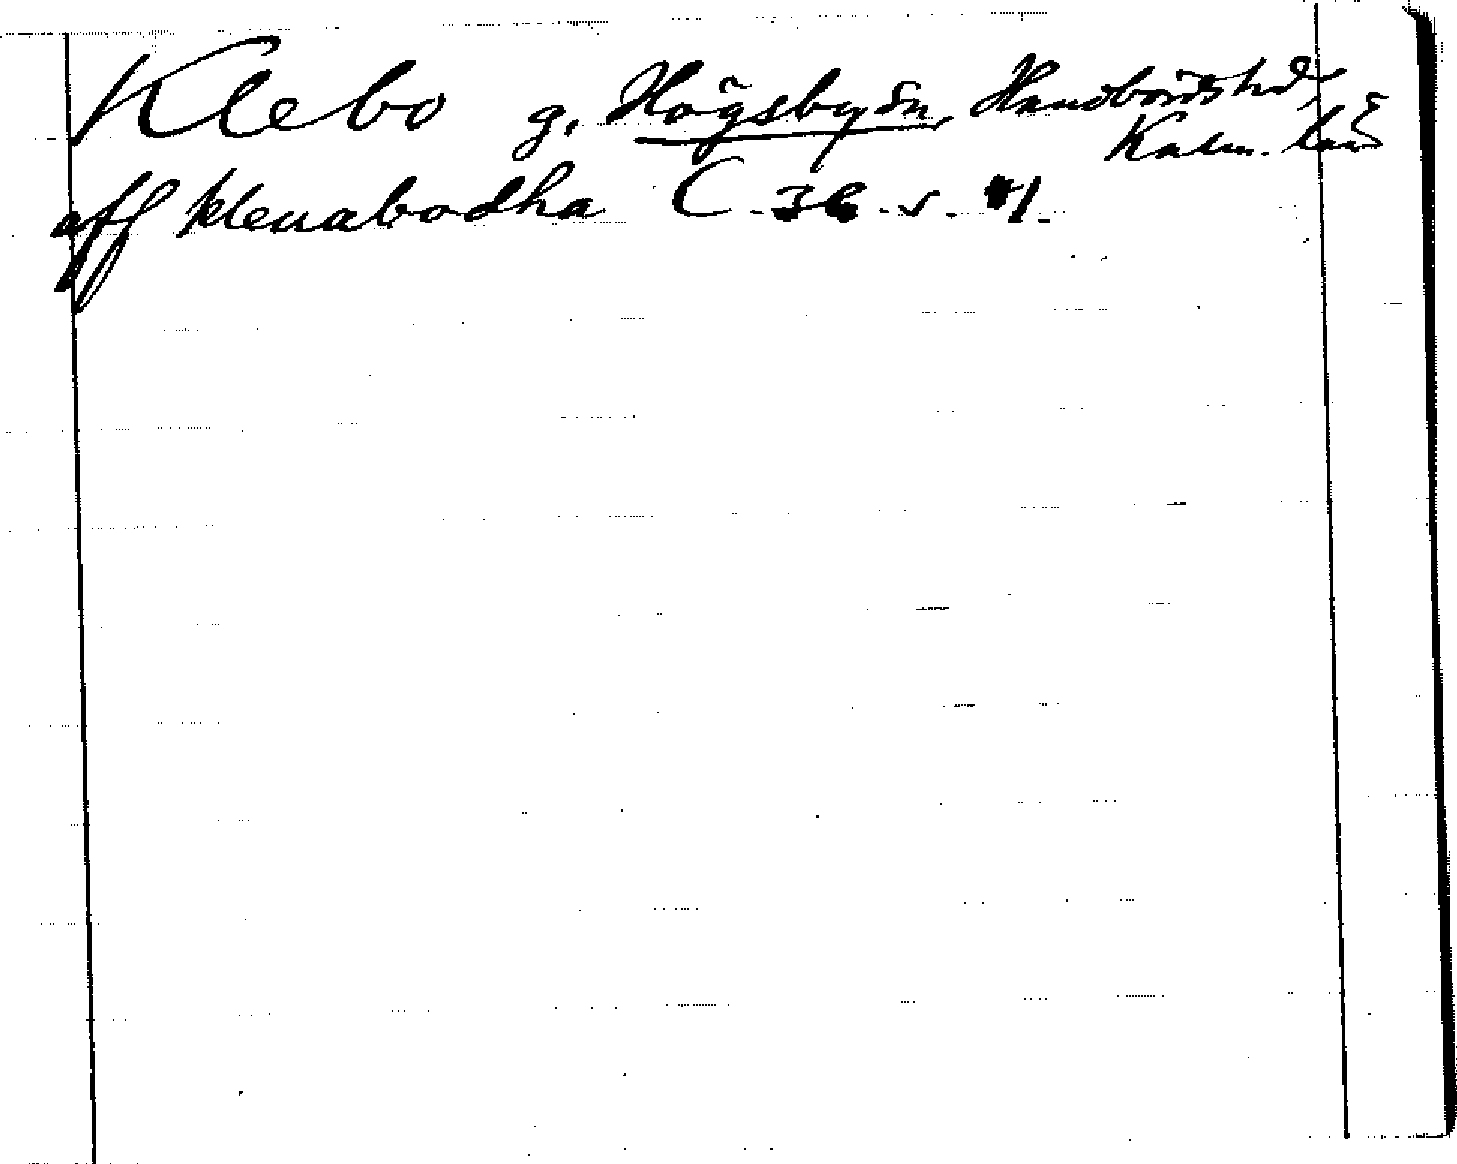 Klebo g. Högsby sn, Handbörds hd,
Kalm. län
aff klenabodha C 36 s. 41.